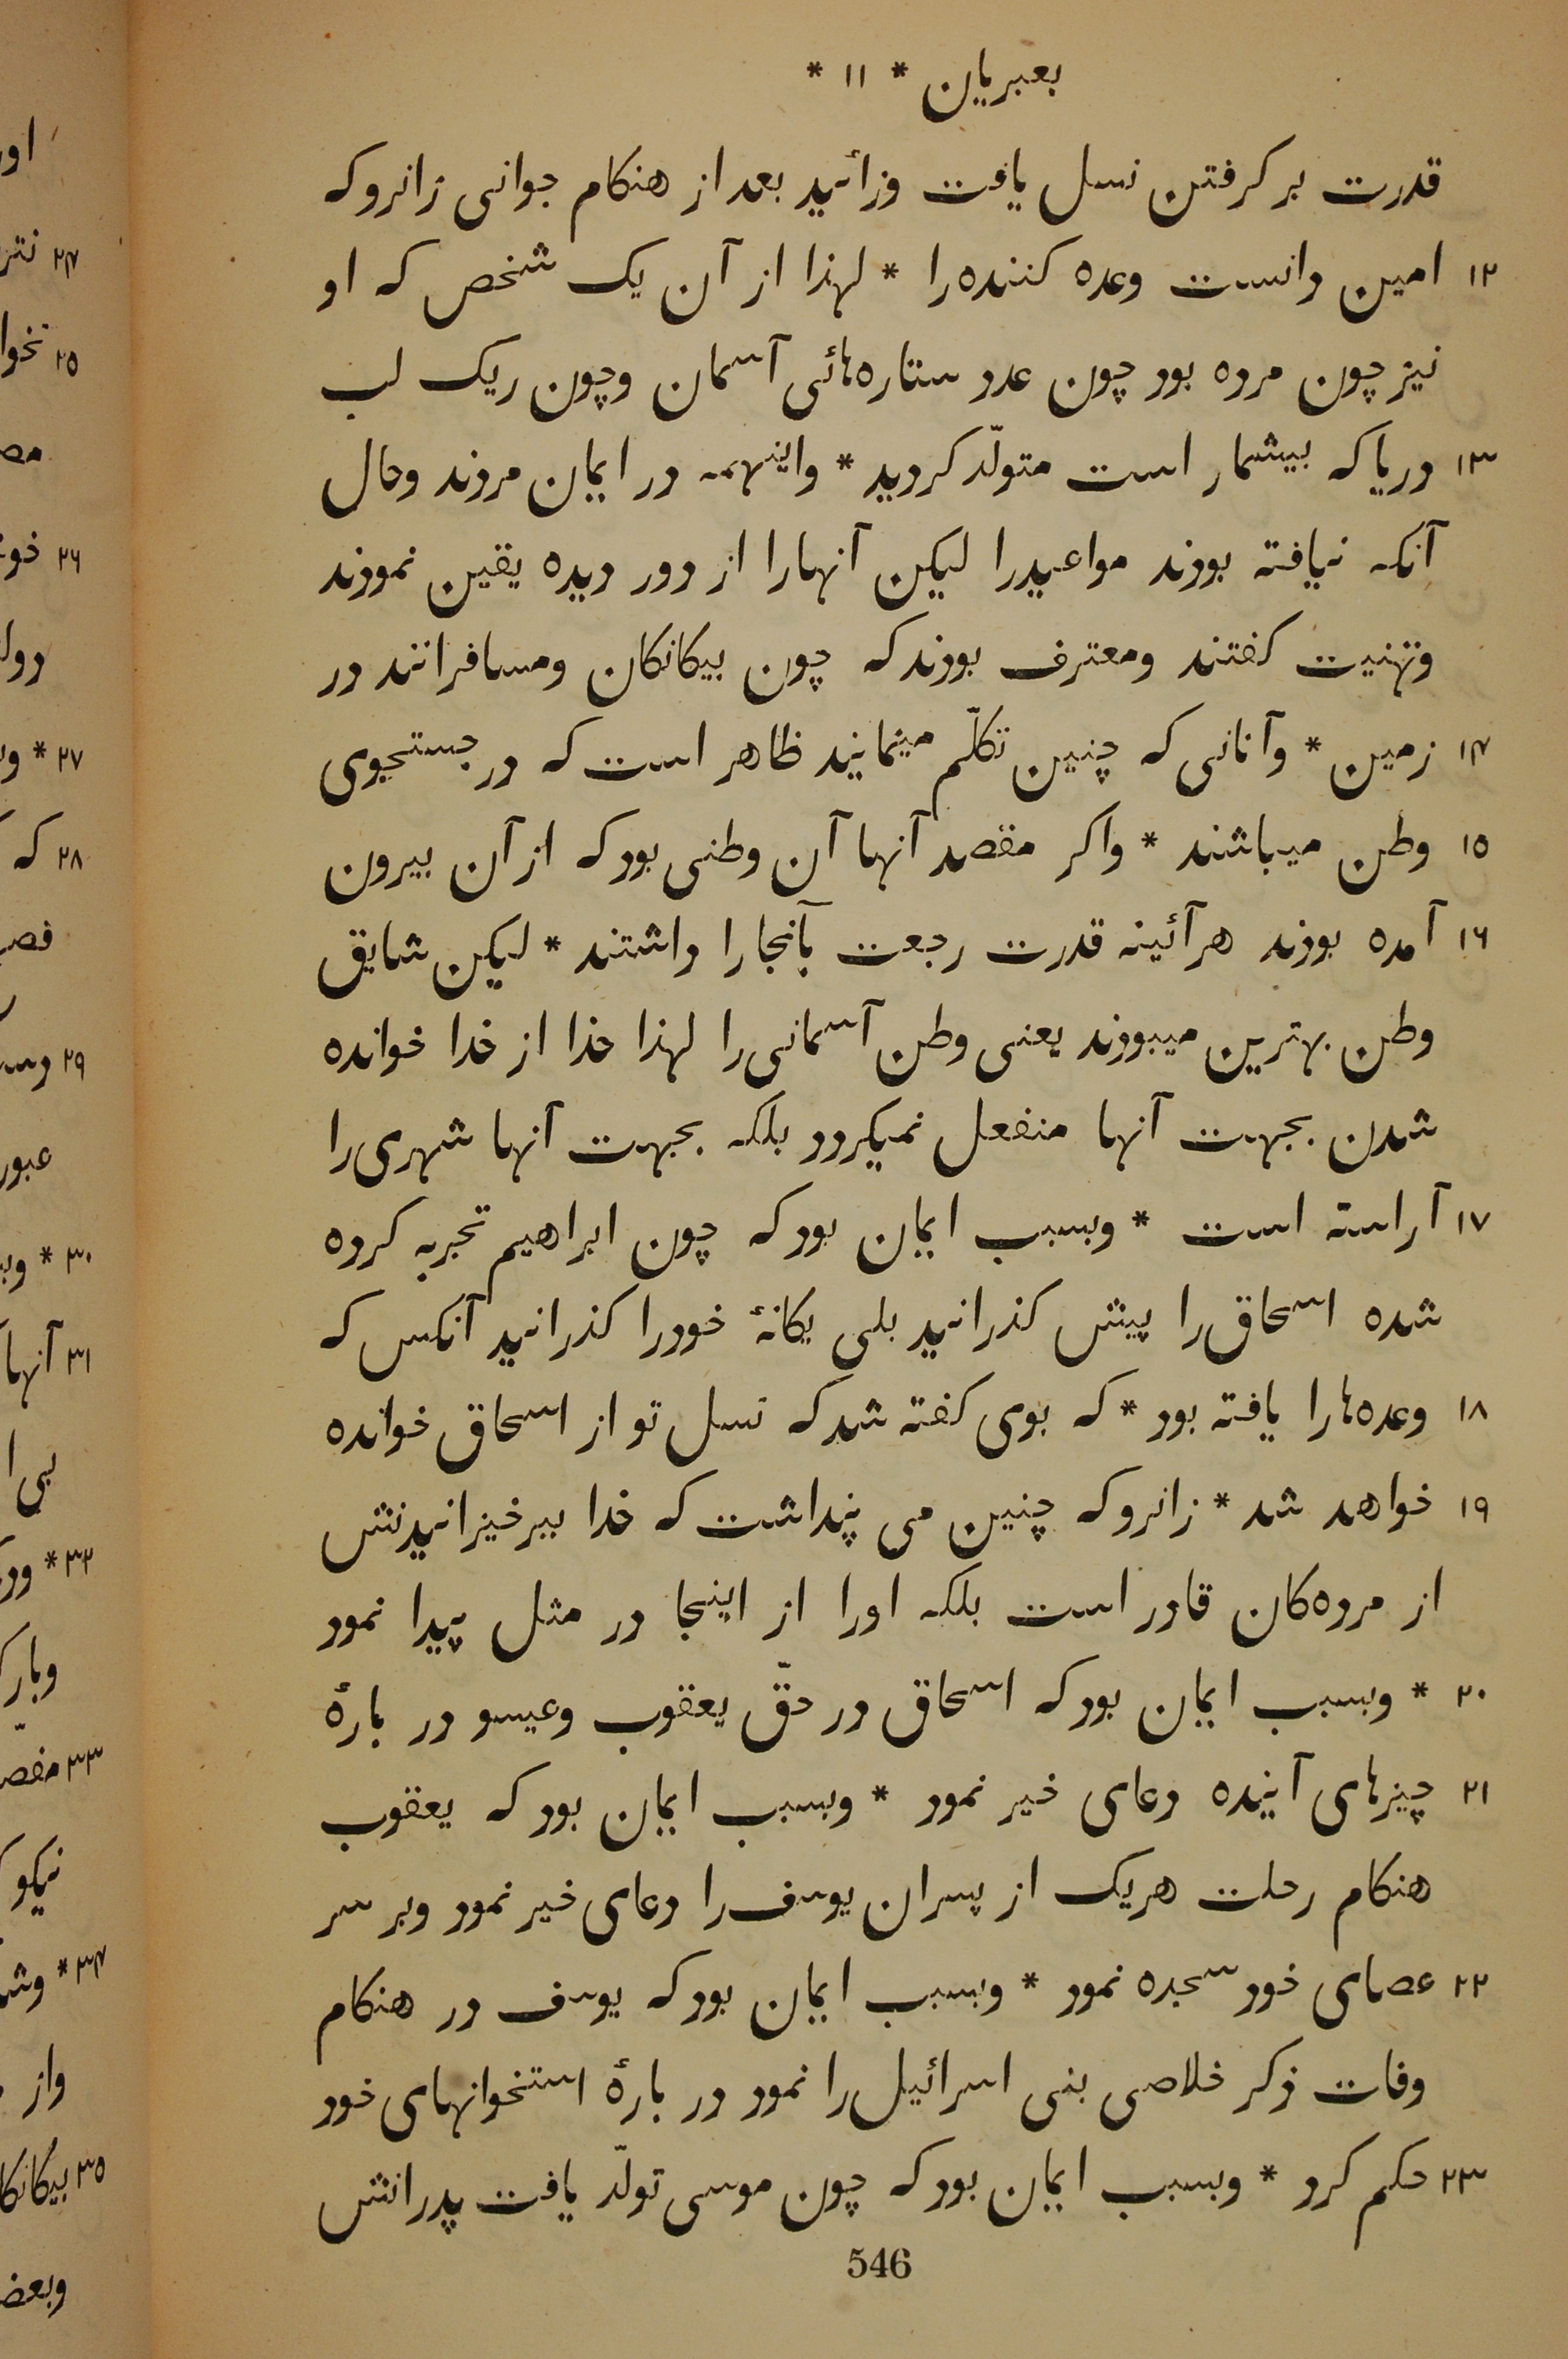 بعبریان * ۱۱ *
قدرت بر کرفتن نسل یافت وزائید بعد از هنکام جوانی زانروکه
۱۲ امین دانست وعده کننده را * لهذا از آن یک شخص که او
نیز چون مرده بود چون عدد ستاره‌هائی آسمان وچون ریک لب
۱۳ دریا که بیشمار است متولّد کردید * واینهمه در ایمان مردند وحال
آنکه نیافته بودند مواعیدرا لیکن آنهارا از دور دیده یقین نمودند
وتهنیت کفتند ومعترف بودند که چون بیکانکان ومسافرانند در
۱۴ زمین * وآنانی که چنین تکلّم مینمایند ظاهر است که در جستجوی
۱۵ وطن میباشند * واکر مقصد آنها آن وطنی بود که از آن بیرون
۱۶ آمده بودند هرآئینه قدرت رجعت بآنجا را داشتند * لیکن شایق
وطن بهترین میبودند یعنی وطن آسمانی را لهذا خدا از خدا خوانده
شدن بجهت آنها منفعل نمیکردد بلکه بجهت آنها شهری را
۱۷ آراسته است * وبسبب ایمان بود که چون ابراهیم تجربه کرده
شده اسحاق را پیش کذرانید بلی یکانهٔ خودرا کذرانید آنکس که
۱۸ وعده‌هارا یافته بود * که بوی کفته شد که نسل تو از اسحاق خوانده
۱۹ خواهد شد * زانرو که چنین می پنداشت که خدا ببرخیزانیدنش
از مرده‌کان قادر است بلکه اورا از اینجا در مثل پیدا نمود
۲۰ * وبسبب ایمان بود که اسحاق در حقّ یعقوب وعیسو در بارهٔ
۲۱ چیزهای آینده دعای خیر نمود * وبسبب ایمان بود که یعقوب
هنکام رحلت هریک از پسران یوسف را دعای خیر نمود وبر سر
۲۲ عصای خود سجده نمود * وبسبب ایمان بود که یوسف در هنکام
وفات ذکر خلاصی بنی اسرائیل را نمود در بارهٔ استخوانهای خود
۲۳ حکم کرد * وبسبب ایمان بود که چون موسی تولّد یافت پدرانش
546